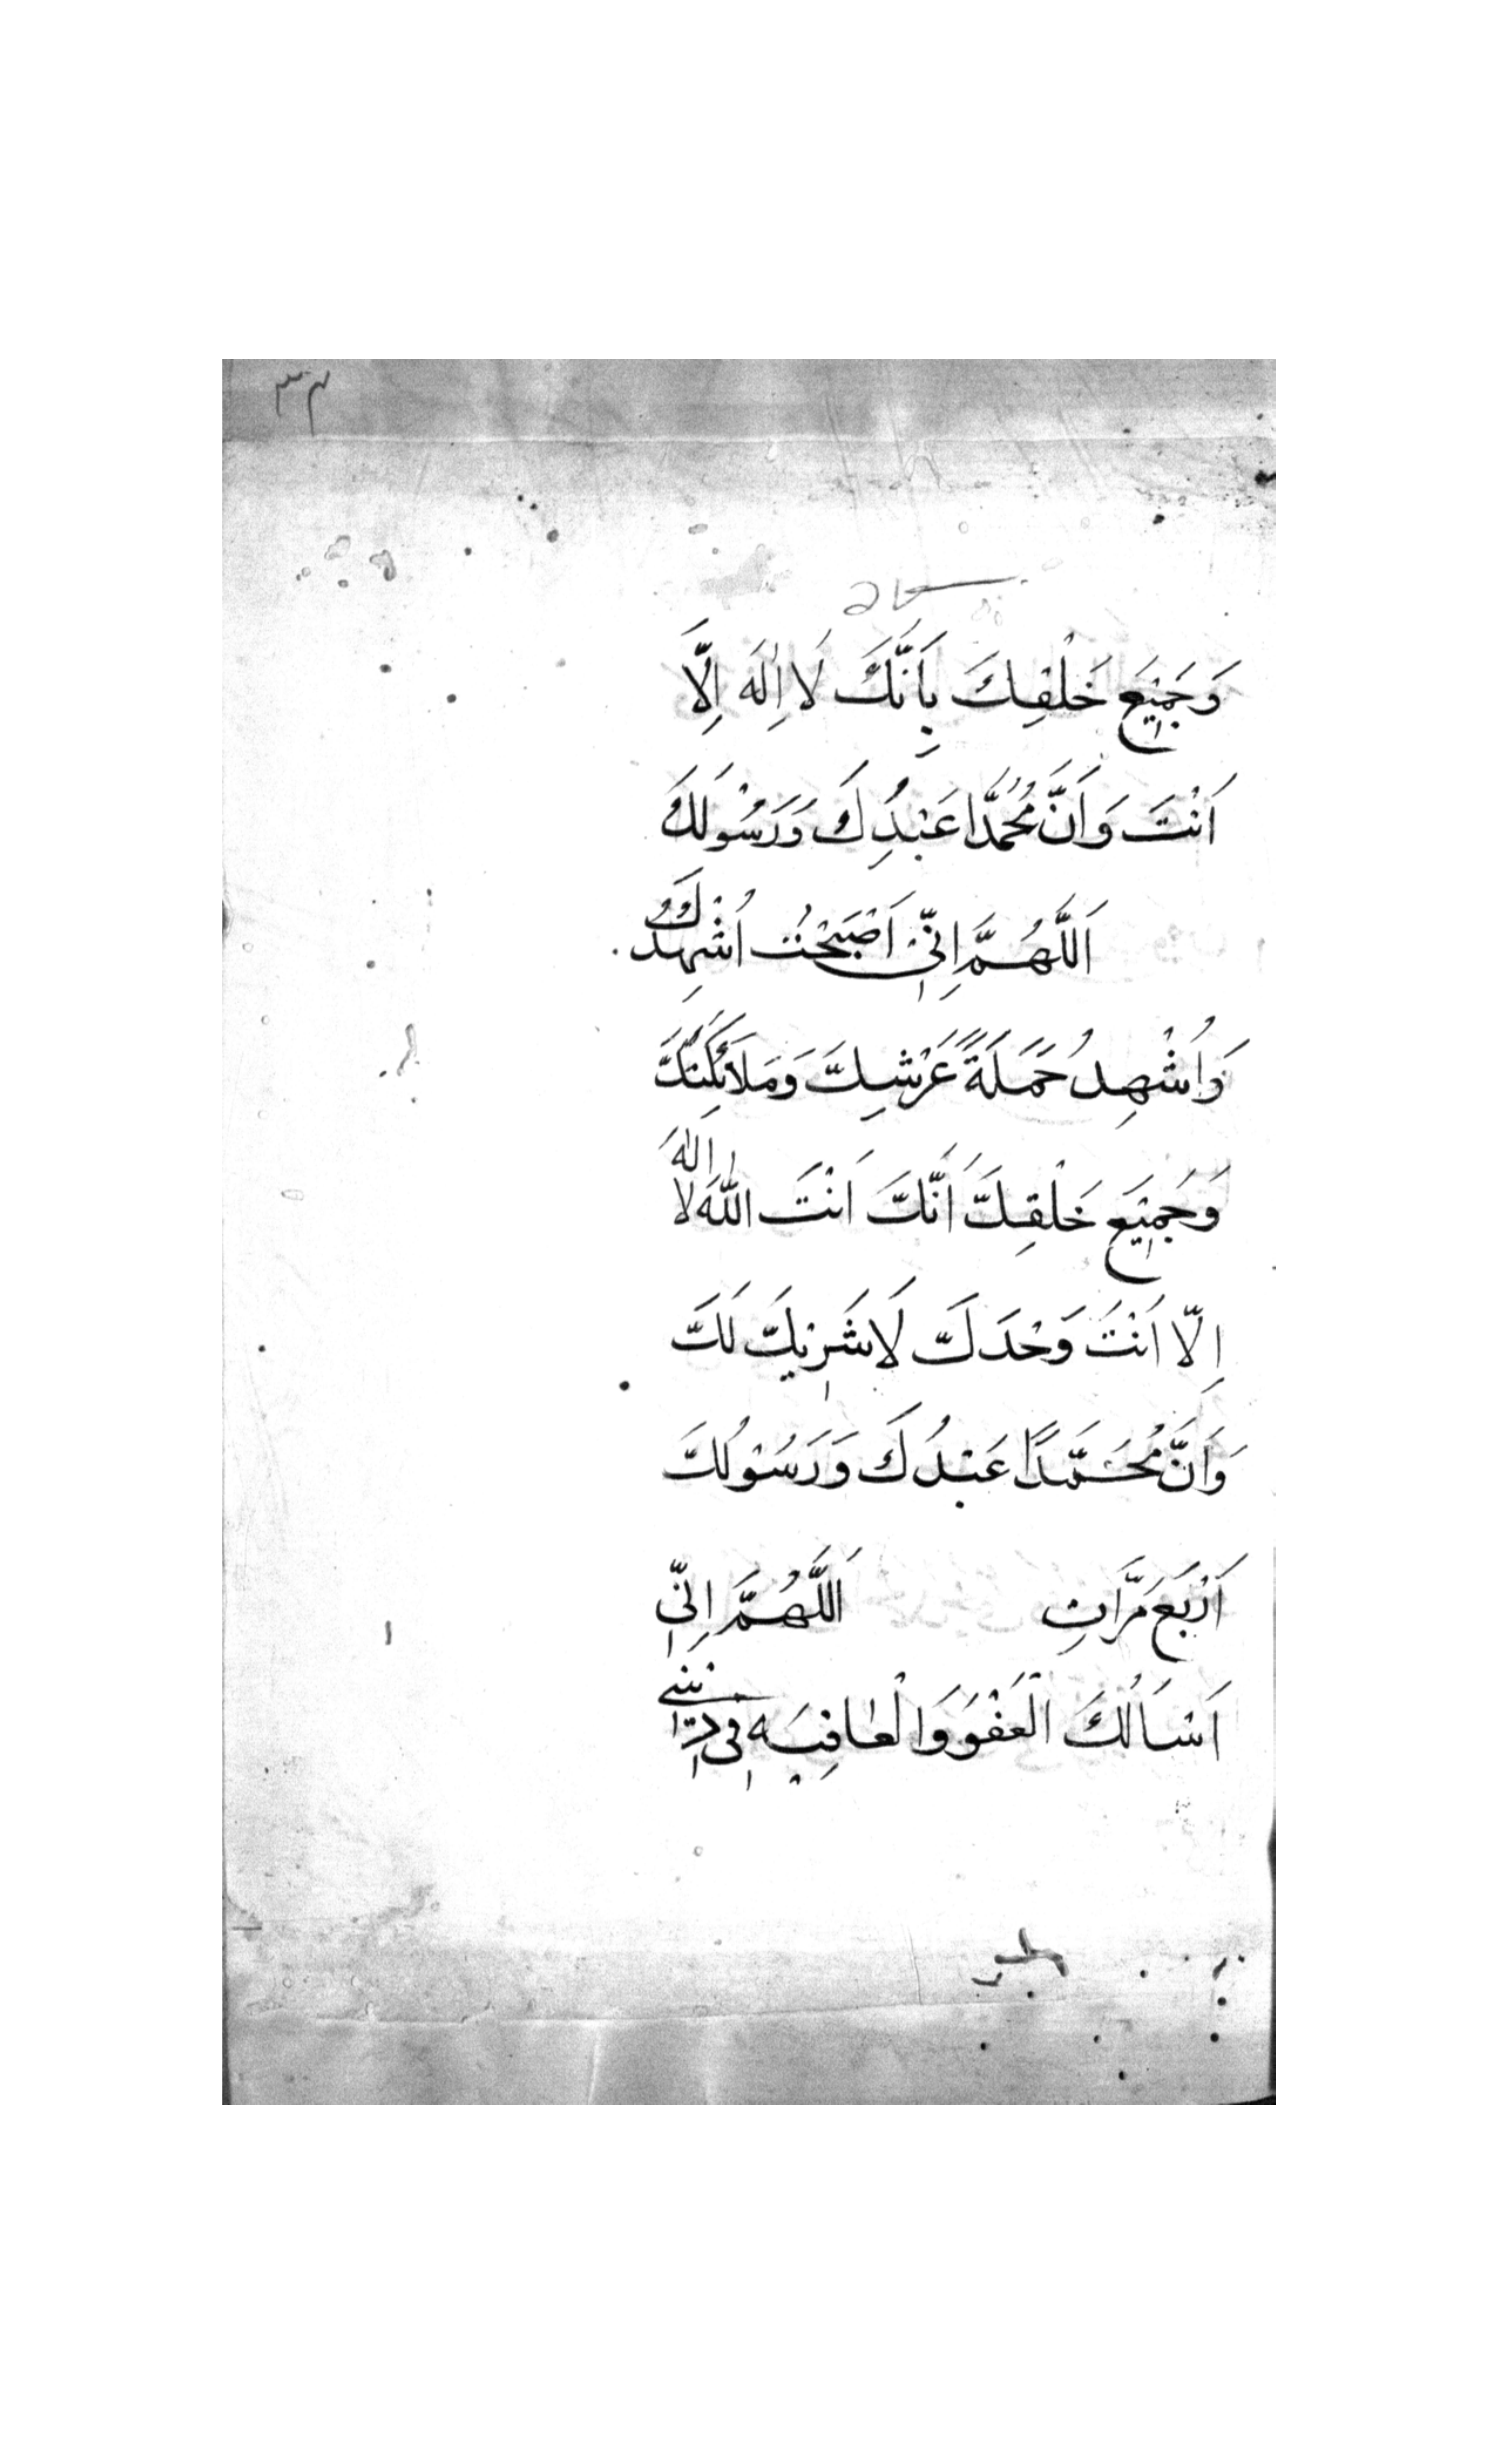 ٣٣
وَجَمِيْعَ خَلْقِكَ بِاَنَّكَ لَا اِلٰهَ اِلَّا
اَنْتَ وَاَنَّ مُحَمَّدًا عَبْدُكَ وَرَسُوْلُكَ
اَللّٰهُمَّ اِنِّيْ اَصْبَحْتُ اُشْهِدُكَ
وَاُشْهِدُ حَمَلَةَ عَرْشِكَ وَمَلَائِكَتَكَ
وَجَمِيْعَ خَلْقِكَ اَنَّكَ اَنْتَ اللّٰهُ لَا اِلٰهَ
اِلَّا اَنْتَ وَحْدَكَ لَا شَرِيْكَ لَكَ
وَاَنَّ مُحَمَّدًا عَبْدُكَ وَرَسُوْلُكَ
اَرْبَعَ مَرَّاتٍ اَللّٰهُمَّ اِنِّيْ
اَسْاَلُكَ الْعَفْوَ وَالْعَافِيَه فِيْ دِيْنِيْ